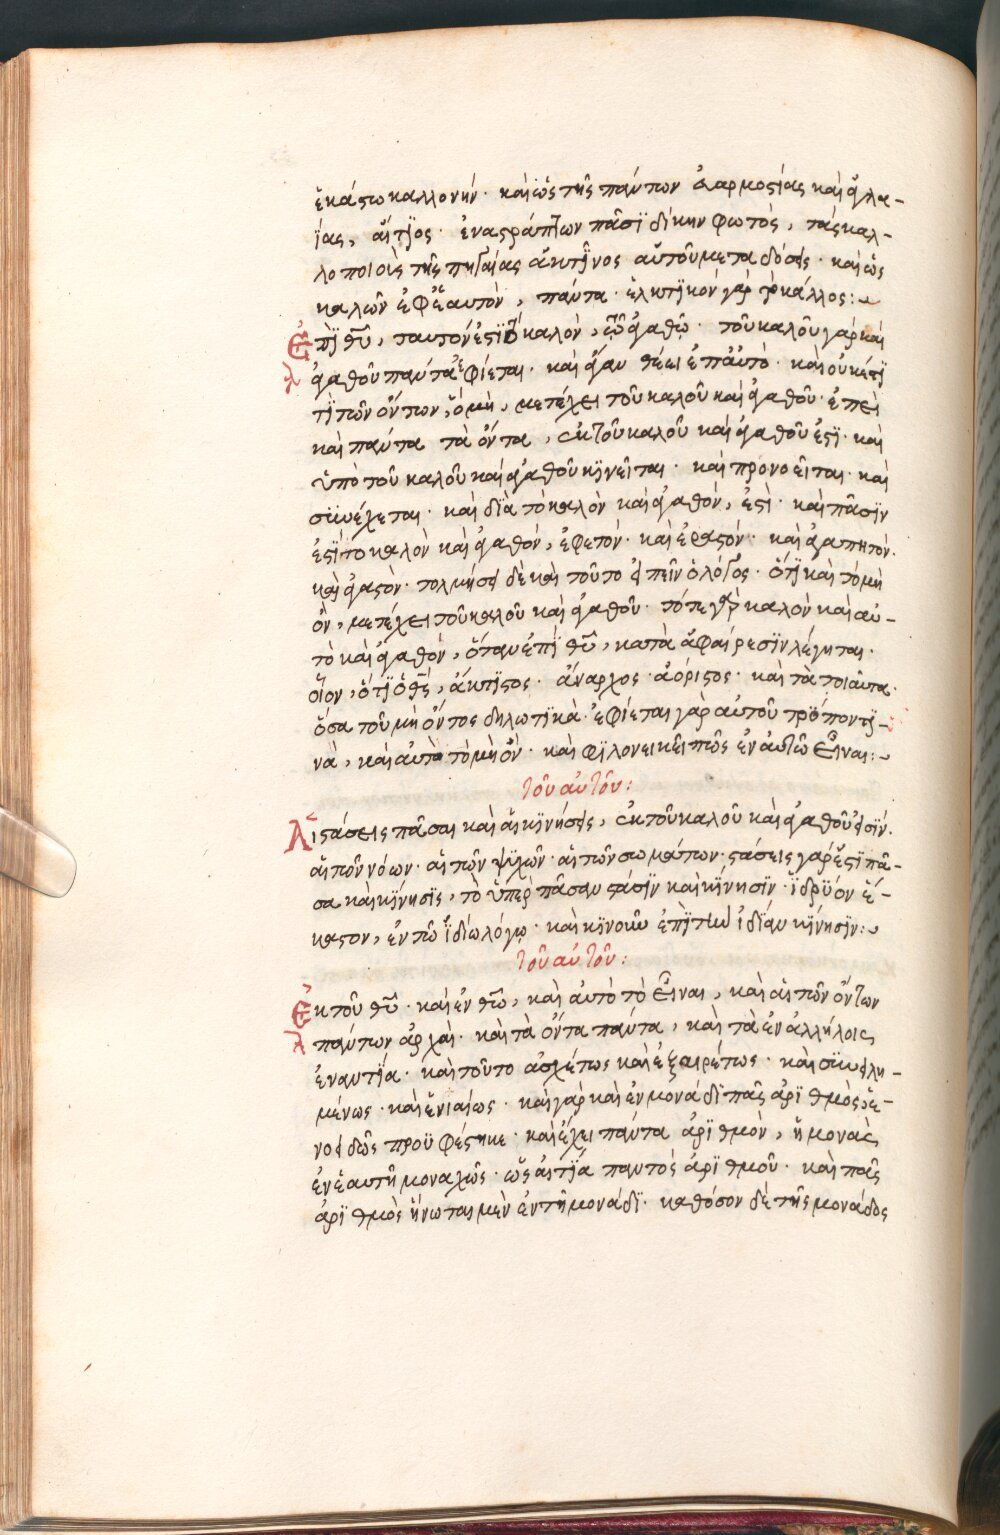 ἑκάστω καλλονήν· καὶ ὡς τῆς πάντων εὐαρμοστίας καὶ ἀγλα-
ΐας, αἴτϊος· ἐναστράπτων πᾶσϊ δίκην φωτὸς, τὰς καλ-
λοποιοὺς τῆς πηγαίας ἀκτῖνος αὐτοῦ μεταδόσεις· καὶ ὡς
καλῶν ἐφ' ἑαυτὸν, πάντα· ἑλκτϊκὸν γὰρ τὸ κάλλος:~
Ἐπῒ θῦ, ταυτόν ἐστϊ τὸ καλὸν, τῶ ἀγαθῶ· τοῦ καλοῦ γάρ καὶ
ἀγαθοῦ πάντα ἐφίεται· καὶ ἄγαν θέει ἐπ' αὐτὸ· καὶ οὐκ ἔτϊ
τϊ τῶν ὄντων, ὃ μὴ, μετέχει τοῦ καλοῦ καὶ ἀγαθοῦ· ἐπεὶ
καὶ πάντα τὰ ὄντα, ἐκ τοῦ καλοῦ καὶ ἀγαθοῦ ἐστϊ· καὶ
ὑπὸ τοῦ καλοῦ καὶ ἀγαθοῦ κϊνεῖται· καὶ προνοεῖται· καὶ
συνέχεται· καὶ δϊὰ τὸ καλὸν καὶ ἀγαθόν, ἐστὶ· καὶ πᾶσϊν
ἐστῒ τὸ καλὸν καὶ ἀγαθὸν, ἐφετόν· καὶ ἐραστόν· καὶ ἀγαπητόν·
καὶ ἀγαστὸν· τολμήσει δὲ καὶ τοῦτο εἰπεῖν ὁ λόγος· ὅτϊ καὶ τὸ μὴ
ὂν, μετέχει τοῦ καλοῦ καὶ ἀγαθοῦ· τότε γὰρ καλὸν καὶ αὐ-
τὸ καὶ ἀγαθὸν, ὅταν ἐπῒ θῦ, κατὰ ἀφαίρεσϊν λέγηται·
οἷον, ὅτϊ ὁ θς, ἄκτϊστος· ἄναρχος· ἀόριστος· καὶ τὰ τοιαῦτα·
ὅσα τοῦ μὴ ὄντος δηλωτϊκὰ· ἐφίεται γὰρ αὐτοῦ τρόπον τϊ-
νὰ, καὶ αὐτὸ τὸ μὴ ὂν· καὶ φϊλονεικεῖ πῶς ἐν αὐτῶ εἶναι:~
τοῦ αὐτοῦ:
Αἱ στάσεις πᾶσαι καὶ αἱ κϊνήσεις, ἐκ τοῦ καλοῦ καὶ ἀγαθοῦ εἰσίν·
αἱ τῶν νόων· αἱ τῶν ψϋχῶν· αἱ τῶν σωμάτων· στάσεις γάρ ἐστϊ πᾶ-
σα καὶ κίνησϊς, τὸ ὑπὲρ πᾶσαν στάσϊν καὶ κϊνησϊν· ἱδρῦον ἕ-
καστον, ἐν τῶ ἰδίω λόγω· καὶ κϊνοῦν ἐπῒ τὴν ἰδίαν κίνησϊν:~
τοῦ αὐτοῦ:
Ἐκ τοῦ θῦ· καὶ ἐν θῶ, καὶ αὐτὸ τὸ εἶναι, καὶ αἱ τῶν ὄντων
πάντων ἀρχαὶ· καὶ τὰ ὄντα πάντα, καὶ τὰ ἐν ἀλλήλοις
ἐναντϊα· καὶ τοῦτο ἀσχέτως καὶ ἐξαιρέτως· καὶ συνειλη-
μένως· καὶ ἑνιαίως· καὶ γὰρ καὶ ἐν μονάδϊ πᾶς ἀρϊθμὸς ἑ-
νοειδῶς προϋφέστηκε· καὶ ἔχει πάντα ἀρϊθμὸν, ἡ μονὰς
ἐν ἑαυτῆ μοναχῶς· ὡς αἰτϊα παντὸς ἀρϊθμοῦ· καὶ πᾶς
ἀρϊθμὸς ἥνωται μὲν ἐν τῆ μονάδϊ· καθόσον δὲ τῆς μονάδος